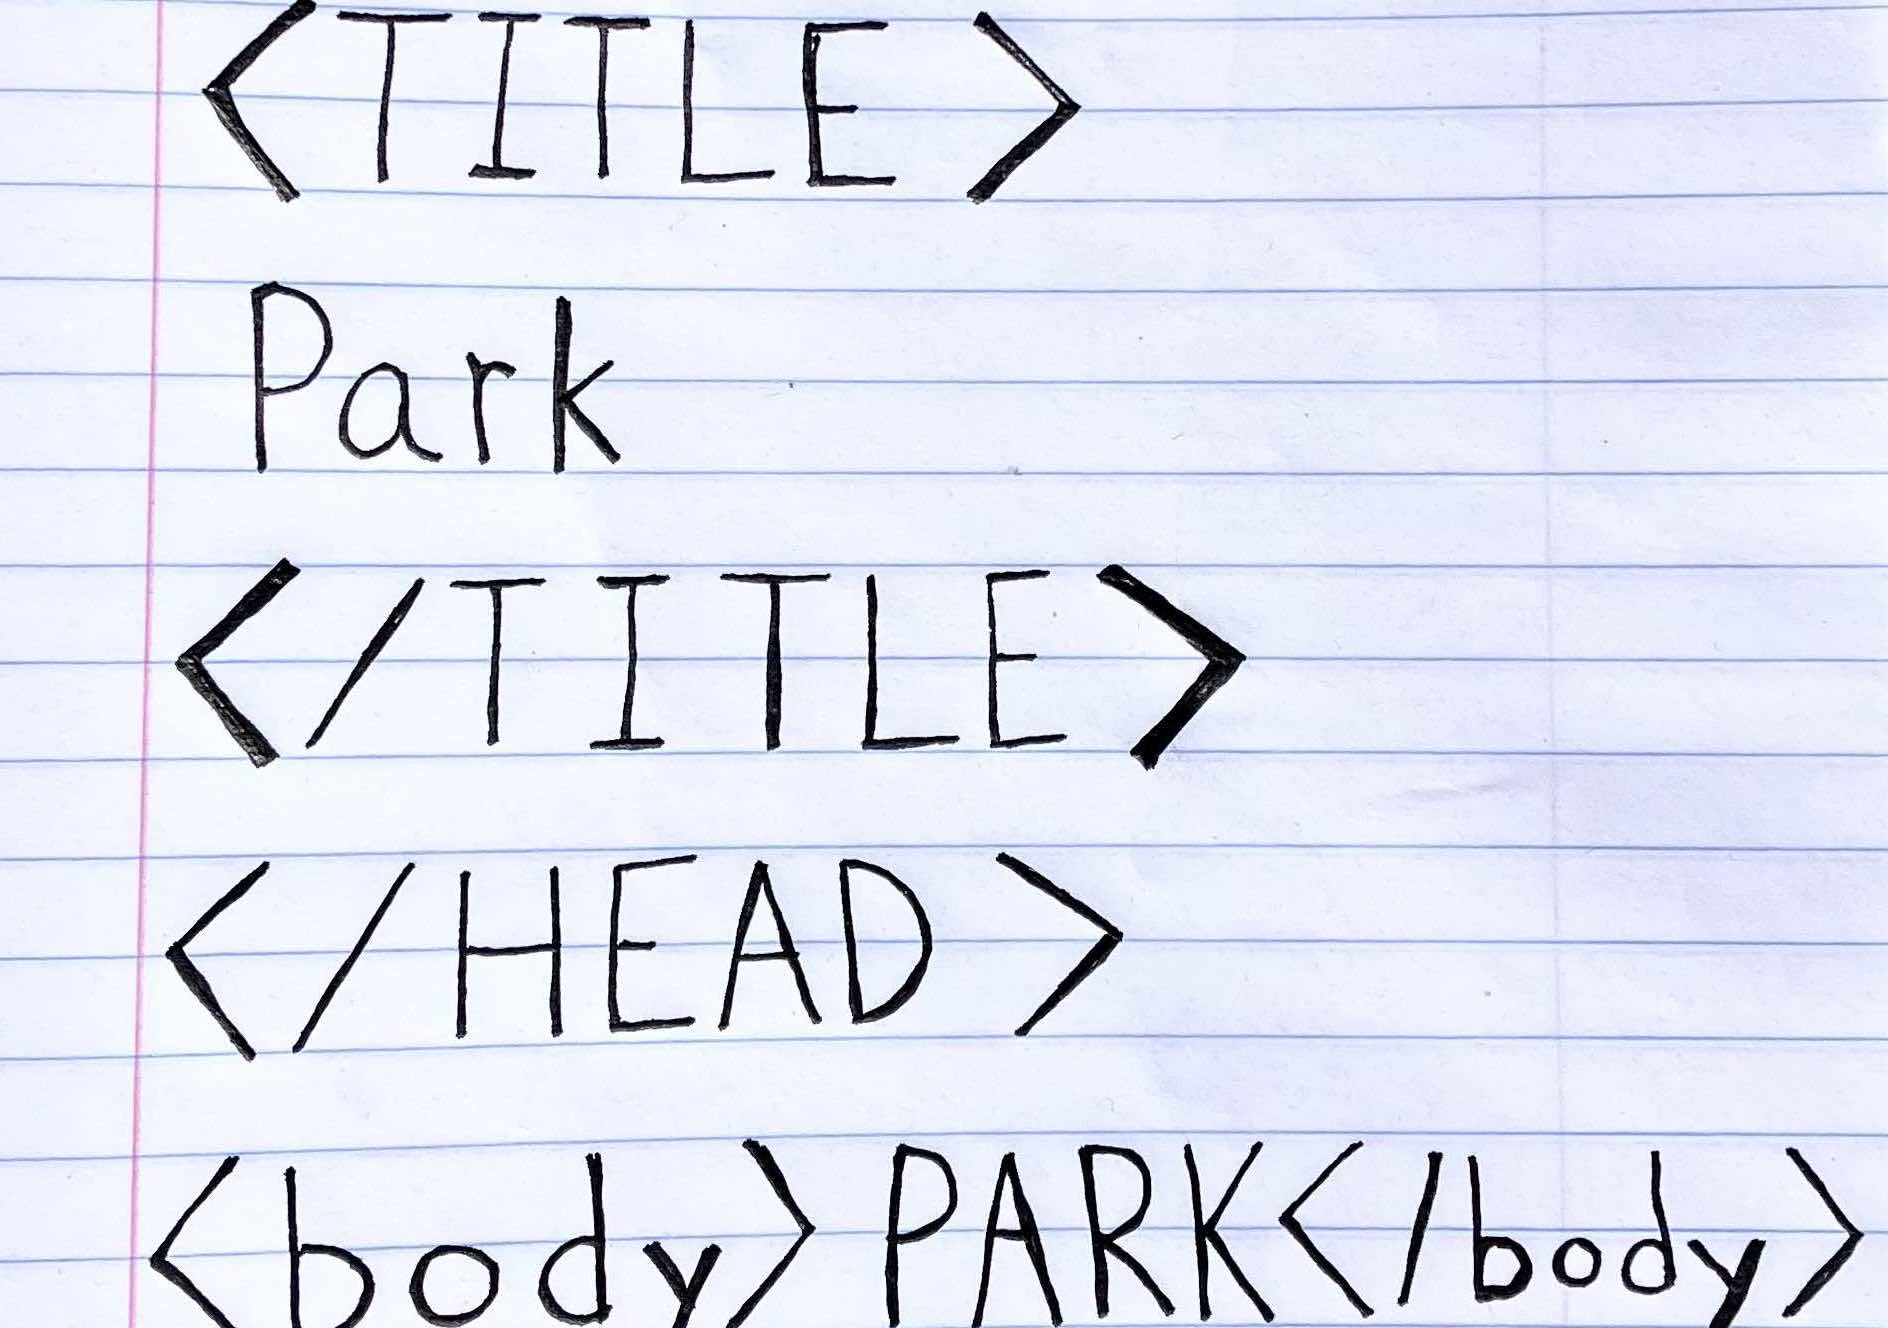 <TITLE>
Park
</TITLE>
</HEAD>
<body>PARK</body>